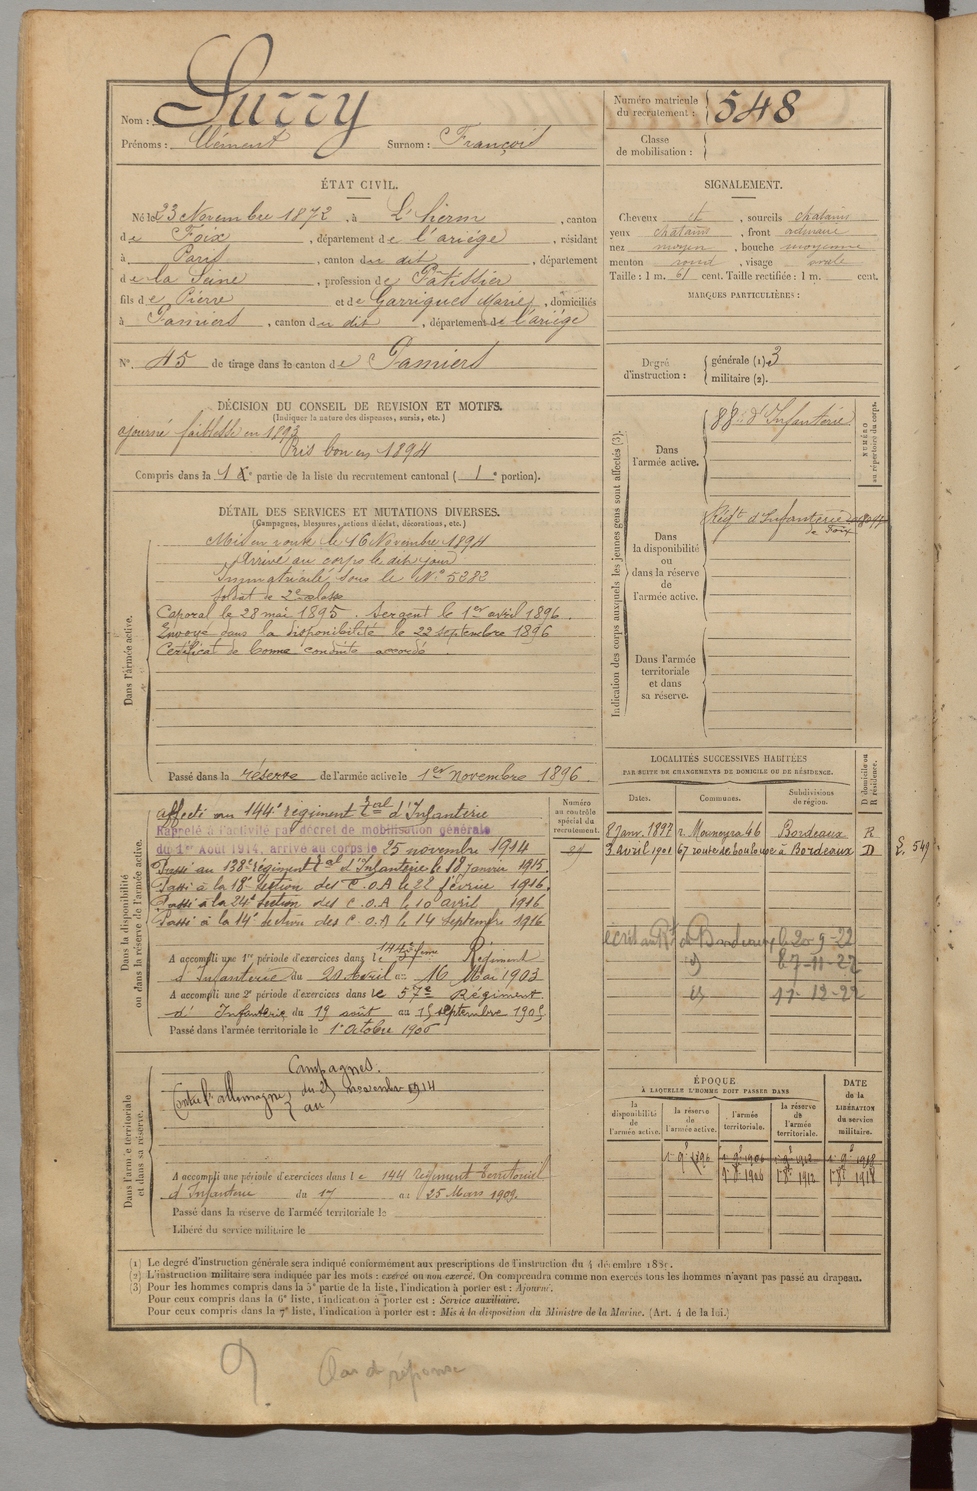 Nom : Surry
Prénoms : Clément Surnom : François
Numéro matricule du recrutement : 548
Classe de mobilisation :
ÉTAT CIVIL.
Né le 23 Novembre 1872, à L'herm, canton
de Foix, département de l'ariège, résidant
à Paris, canton du dit, département
de la Seine, profession de Pâtissier
fils de Pierre et de Garrigues Marie, domiciliés
à Pamiers, canton du dit, département de l'ariège
N°. 45 de tirage dans le canton de Pamiers
SIGNALEMENT.
Cheveux et, sourcils chatains
yeux chatains, front
nez moyen, bouche moyenne
menton rond, visage ovale
Taille : 1 m. 61 cent. Taille rectifiée : 1 m. cent.
MARQUES PARTICULIÈRES :
Degré d'instruction : générale (1). 3
militaire (2).
DÉCISION DU CONSEIL DE REVISION ET MOTIFS.
(Indiquer la nature des dispenses, sursis, etc.)
ajourné faiblesse en 1893
Pris bon en 1894
Compris dans la 1e partie de la liste du recrutement cantonal ( 1e portion).
DÉTAIL DES SERVICES ET MUTATIONS DIVERSES.
(Campagnes, blessures, actions d'éclat, décorations, etc.)
Dans l'armée active.
Mis en route le 16 Novembre 1894
Arrivé au corps le dit jour
Immatriculé sous le N° 5282
Soldat de 2e classe
Caporal le 28 mai 1895 Sergent le 1er avril 1896.
Envoyé dans la disponibilité le 22 septembre 1896
Certificat de bonne conduite accordé.
Passé dans la réserve de l'armée active le 1er novembre 1896.
Indication des corps auxquels les jeunes gens sont affectés (3).
NUMÉRO au répertoire du corps.
Dans l'armée active.
88e d'Infanterie
Dans la disponibilité ou dans la réserve de l'armée active.
Régt d'Infanterie
de Foix
Dans l'armée territoriale et dans sa réserve.
Dans la disponibilité ou dans la réserve de l'armée active.
Numéro au contrôle spécial du recrutement.
affecté au 144e régiment tal d'Infanterie
Rappelé à l'activité par décret de mobilisation générale
du 1er Août 1914, arrivé au corps le 25 novembre 1914
Passé au 138e régiment tal d'Infanterie le 18 janvier 1915.
Passé à la 18e section des C.O.A le 22 février 1916.
Passé à la 24e section des C.O.A le 10 avril 1916
Passé à la 14e section des C.O.A le 14 septembre 1916
A accompli une 1re période d'exercices dans le 144e Régiment
d'Infanterie du 20 Avril au 16 Mai 1903
A accompli une 2e période d'exercices dans le 57e Régiment
d'Infanterie du 19 août au 15 septembre 1905
Passé dans l'armée territoriale le 1er Octobre 1906
LOCALITÉS SUCCESSIVES HABITÉES
PAR SUITE DE CHANGEMENTS DE DOMICILE OU DE RÉSIDENCE.
Dates. Communes. Subdivisions de région. D domicile ou R résidence.
8 Janv. 1897 r. Mouneyra 46 Bordeaux R
3 avril 1901 67 route de boulouse à Bordeaux D
549
écrit au Rt de Bordeaux le 20-9-22
id 27-11-22
id 11-12-22
Dans l'armée territoriale et dans sa réserve.
Campagnes.
Contre l'allemagne du 25 novembre 1914
au
A accompli une période d'exercices dans le 144 régiment territorial
d'Infanterie du 17 au 25 Mars 1909.
Passé dans la réserve de l'armée territoriale le
Libéré du service militaire le
ÉPOQUE
À LAQUELLE L'HOMME DOIT PASSER DANS
DATE de la LIBÉRATION du service militaire.
la disponibilité de l'armée active. la réserve de l'armée active. l'armée territoriale. la réserve de l'armée territoriale.
1er 9e 1896 1er 9e 1906 1er 9e 1912 1er 9e 1918
1er 8e 1906 1er 8e 1912 1er 8e 1918
(1) Le degré d'instruction générale sera indiqué conformément aux prescriptions de l'instruction du 4 décembre 1889.
(2) L'instruction militaire sera indiquée par les mots : exercé ou non exercé. On comprendra comme non exercés tous les hommes n'ayant pas passé au drapeau.
(3) Pour les hommes compris dans la 5e partie de la liste, l'indication à porter est : Ajourné.
Pour ceux compris dans la 6e liste, l'indication à porter est : Service auxiliaire.
Pour ceux compris dans la 7e liste, l'indication à porter est : Mis à la disposition du Ministre de la Marine. (Art. 4 de la loi.)
Pas de réponse